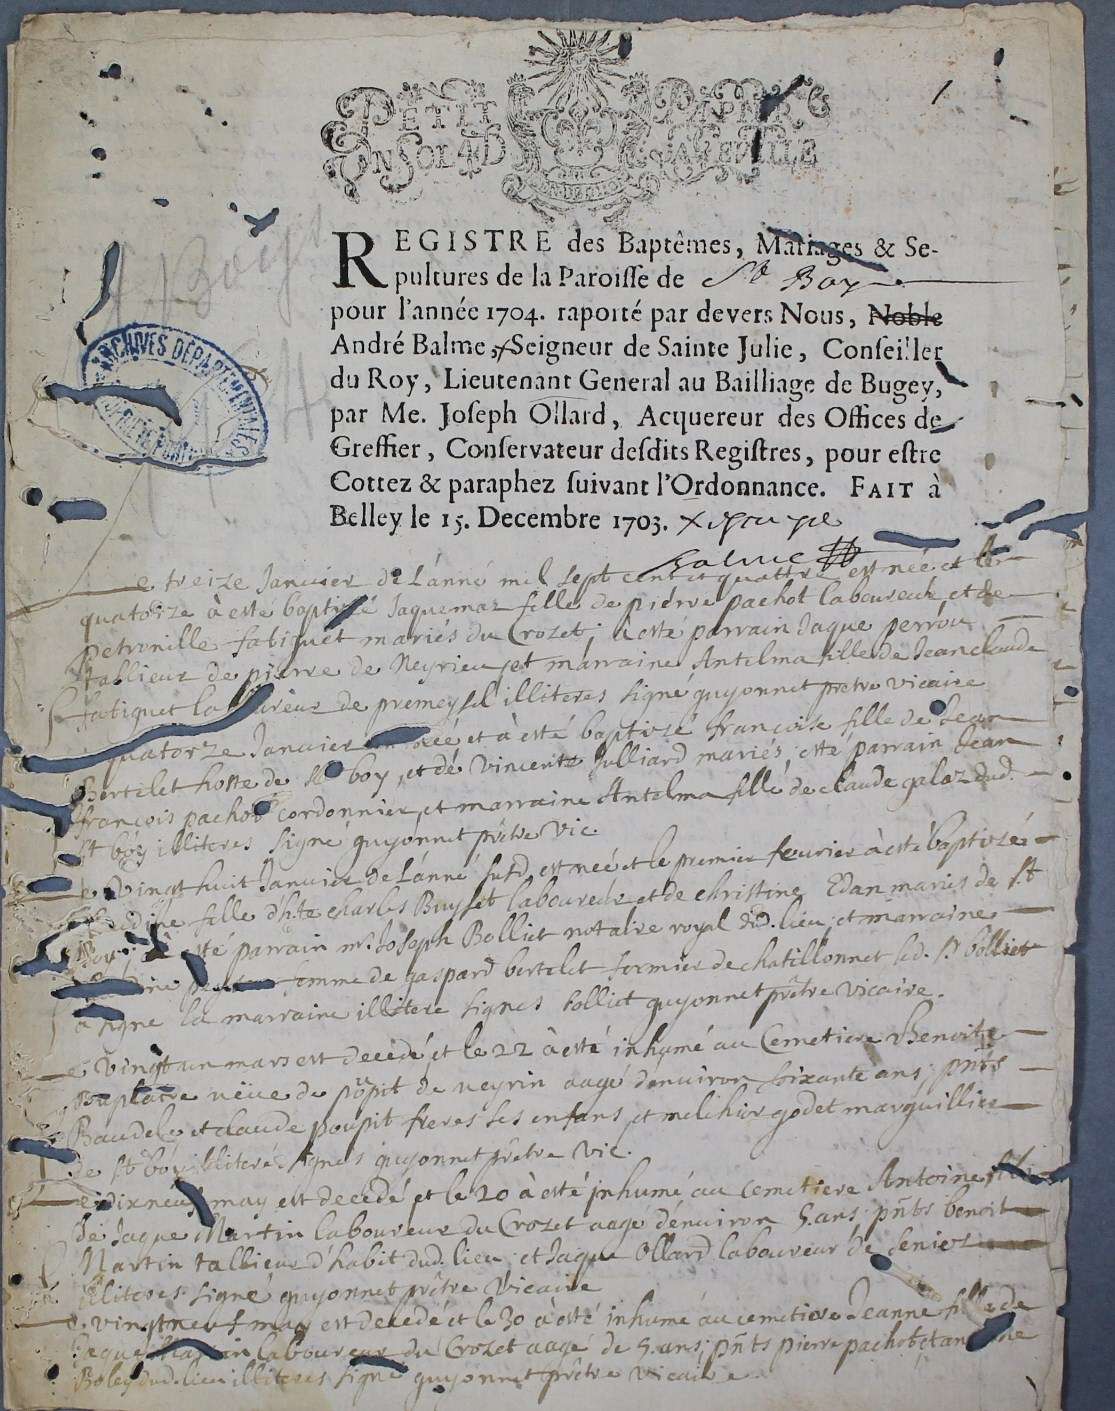 PETIT PAPIER
UN SOL 4D LA FEUILLE
1
REGISTRE des Baptêmes, Mariages & Se-
pultures de la Paroisse de St Boy
pour l'année 1704. raporté par devers Nous, Noble
André Balme, Seigneur de Sainte Julie, Conseiller
du Roy, Lieutenant General au Bailliage de Bugey,
par Me. Joseph Ollard, Acquereur des Offices de
Greffier, Conservateur desdits Registres, pour estre
Cottez & paraphez suivant l'Ordonnance. FAIT à
Belley le 15. Decembre 1703.
Balme
ARCHIVES DEPARTEMENTALES
e treize Janvier de L'anné mil sept cent et quattre est née et le
quatorze à esté baptizé Jaquemaz fille de pierre pachot laboureur et de
petronille fatiguet mariés du Crozet; à esté parrain Jaque perrou
tallieur de pierre de Neyrieu et marraine Antelma fille de Jeanclaude
fatiguet laboureur de premeysel illiteres signé guyonnet prêtre vicaire
quatorze Janvier est née et à esté baptizé françoise fille de Jean
Bertelet hoste de St boy et de vincente Julliard mariés; esté parrain Jean
françois pachot cordonnier et marraine Antelma fille de claude galaz dud.
St boy illiteres signé guyonnet prêtre vic.
e vingt huit Janvier de L'anné susd. est née et le premier feurier à esté baptizé
fille d'hte Charles Buysset laboureur et de christine Edan mariés de St
Boy à esté parrain mr. Joseph Bolliet notaire royal dud. lieu et marraine
femme de gaspard bertelet fermier de chatillonnet led. Sr bolliet
a signé la marraine illitere signés bolliet guyonnet prêtre vicaire.
e vingt un mars est decedé et le 22 à esté inhumé au Cemetiere Benoite
Baplatre véue de poupit de neyrin aagé d'enuiron soixante ans; pnts
Baudele et claude poupit freres ses enfans et melchior godet marguillier
de St boy illiteres signés guyonnet prêtre vic.
e dixneuf may est decedé et le 20 à esté inhumé au cemetiere Antoine fils
de Jaque Martin laboureur du Crozet aagé d'enuiron 5. ans; pnts benoit
Martin tallieur d'habit dud. lieu et Jaque Ollard laboureur de ceniez
illiteres signé guyonnet prêtre vicaire
e vingtneuf may est decedé et le 30 à esté inhumé au cemetiere Jeanne fille de
Jaque Martin laboureur du Crozet aagé de 5. ans; pnts pierre pachot et antoine
Boley dud. lieu illiteres signé guyonnet prêtre vicaire